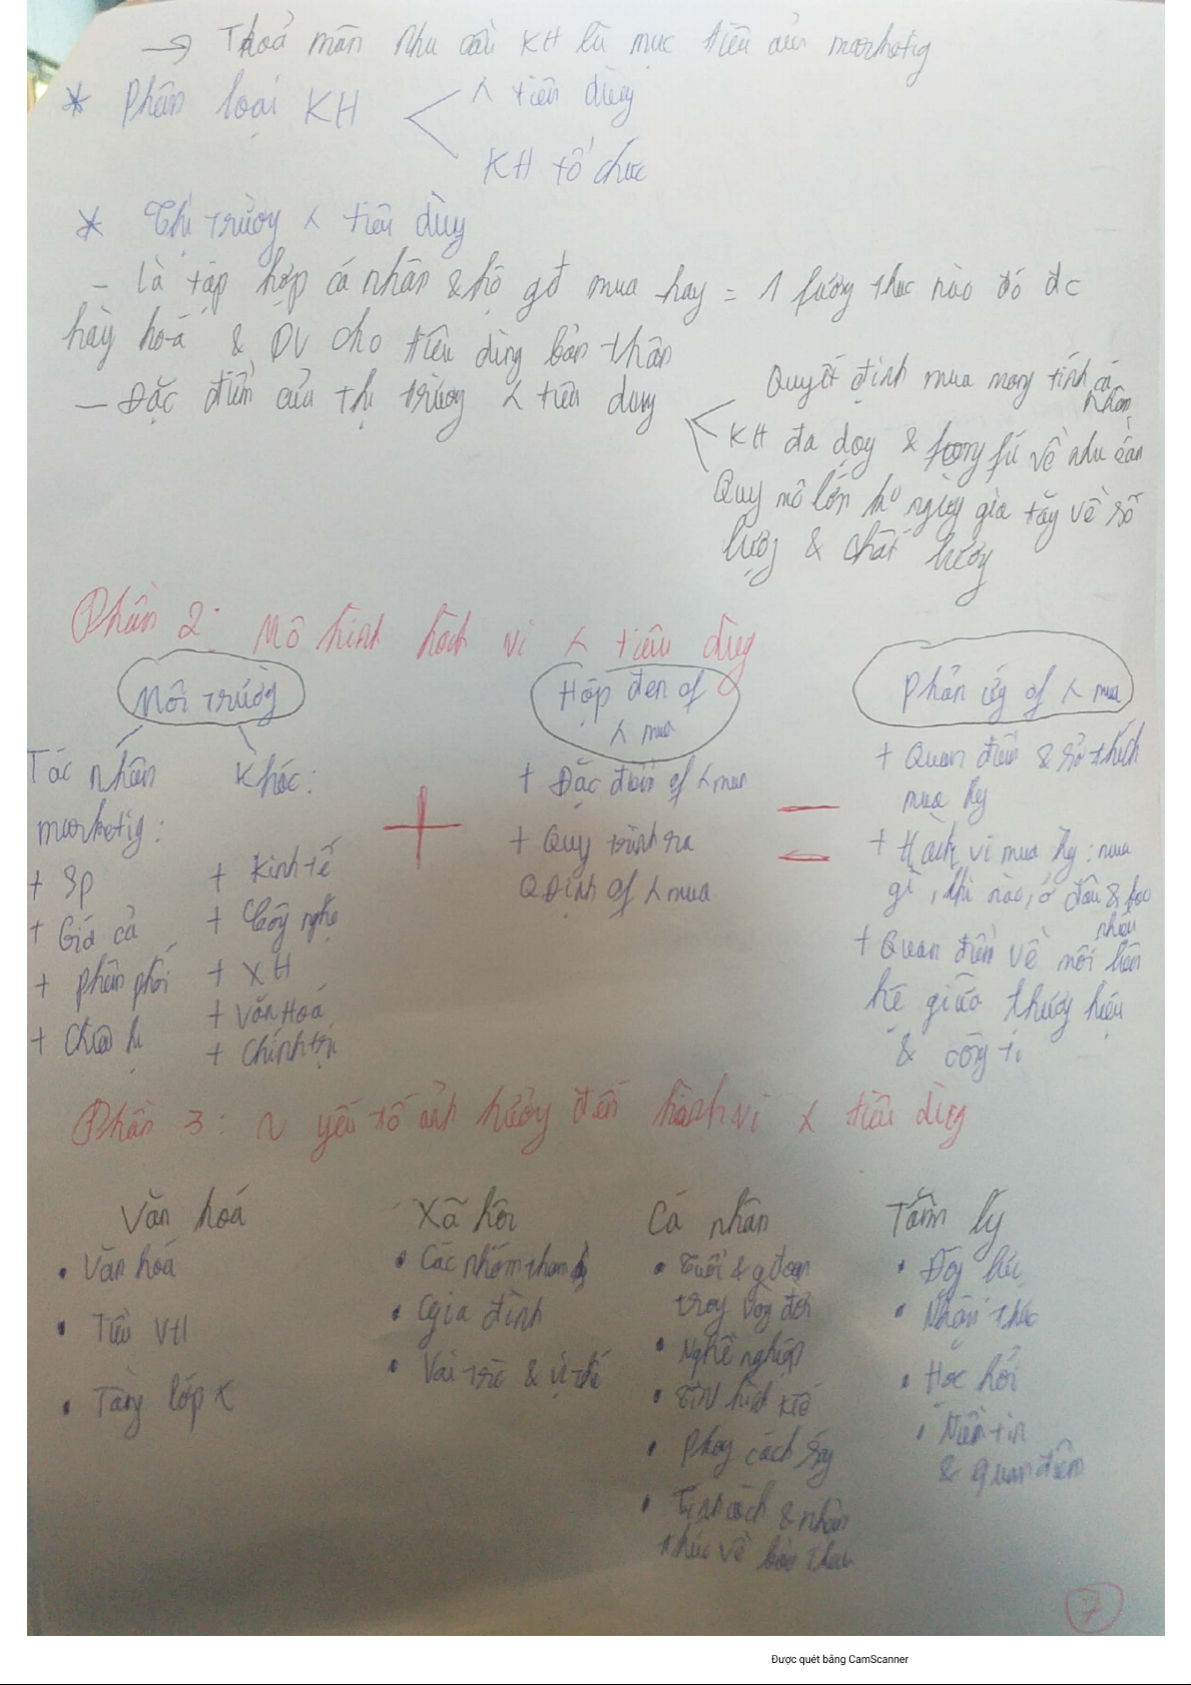 → Thoả mãn nhu cầu KH là mục tiêu của marketig
* Phân loại KH
< tiêu dùng
KH tổ chức
* Thị trường < tiêu dùng
- là tập hợp cá nhân & hộ gđ mua hay = 1 fương thức nào đó đc
hàg hoá & DV cho tiêu dùng bản thân
- Đặc điểm của thị trường < tiêu dùng
Quyết định mua mang tính cá
nhân
KH đa dạg & fong fú về nhu cầu
Quy mô lớn k° ngừg gia tăg về số
lượg & chất lượg
Phần 2: Mô hình hàh vi < tiêu dùg
Môi trườg
Hộp đen of
< mua
Phản ứg of < mua
Tác nhân
marketig:
+ Sp
+ Giá cả
+ Phân phối
Khác:
+ Kinh tế
+ Côg nghệ
+ XH
+ Văn Hoá
+ Chính trị
+ Đặc điểm of < mua
+ Quy trình ra
QĐịnh of < mua
+ Quan điểm & sở thích
mua hg
+ Hàh vi mua hg: mua
gì, khi nào, ở đâu & bao
nhiêu
+ Quan điểm về mối liên
hệ giữa thươg hiệu
& côg ti
Phần 3: ~ yếu tố ảnh hưởng đến hành vi < tiêu dùg
Văn hoá
• Văn hoá
• Tiểu VH
• Tầg lớp
Xã hội
• Các nhóm tham
• Gia đình
• Vai trò & vị thế
Cá nhân
• Tuổi & gđoạn
trog vòg đời
• Nghề nghiệp
• hình ktế
• Phog cách sốg
• Tính cách & nhận
thức về bản thân
Tâm lý
• Độg lực
• Nhận thức
• Học hỏi
• Niềm tin
& quan điểm
7
Được quét bằng CamScanner